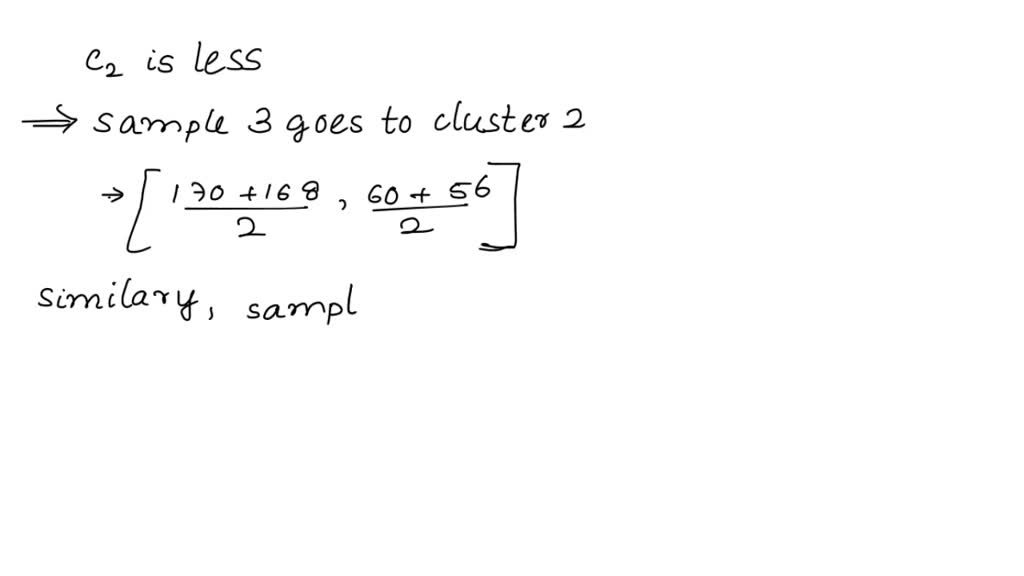 C₂ is less
⇒ sample 3 goes to cluster 2
→ [ (170 + 168)/2 , (60 + 56)/2 ]
similary, sampl